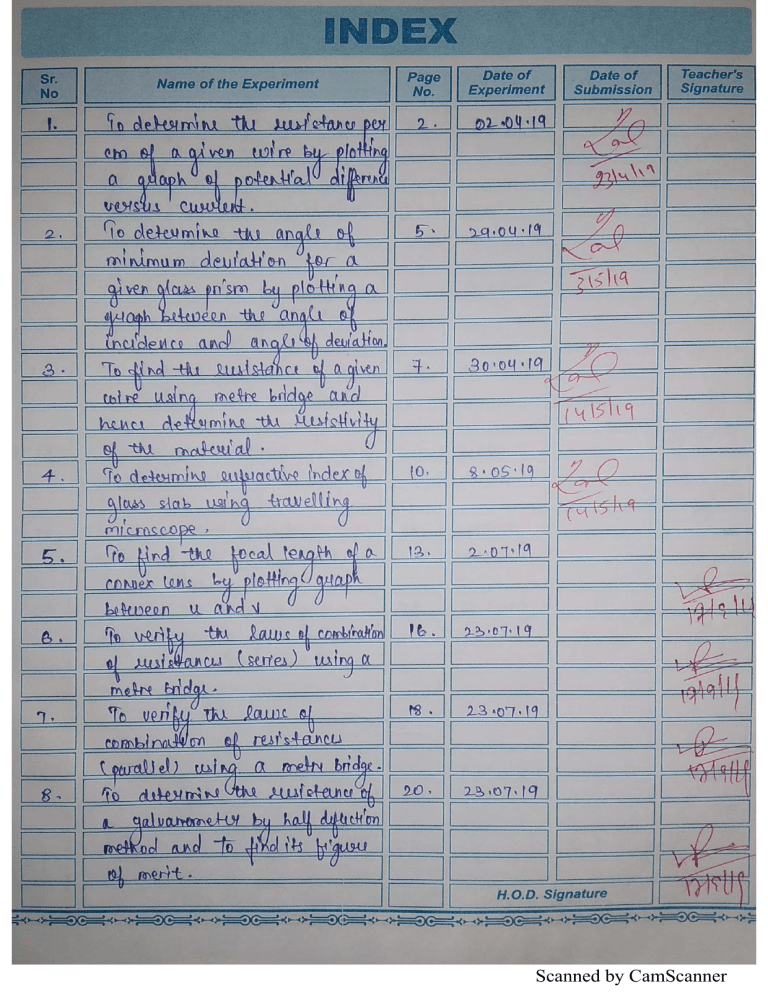 INDEX
Sr. No Name of the Experiment Page No. Date of Experiment Date of Submission Teacher's Signature
1. To determine the resistance per 2. 02.04.19
cm of a given wire by plotting
a graph of potential difference 23/4/19
versus current.
2. To determine the angle of 5. 29.04.19
minimum deviation for a
given glass prism by plotting a 3/5/19
graph between the angle of
incidence and angle of deviation.
3. To find the resistance of a given 7. 30.04.19
wire using metre bridge and
hence determine the resistivity 14/5/19
of the material.
4. To determine refractive index of 10. 8.05.19
glass slab using travelling
microscope. 14/5/19
5. To find the focal length of a 13. 2.07.19
convex lens by plotting graph
between u and v
6. To verify the laws of combination 16. 23.07.19
of resistances (series) using a
metre bridge.
7. To verify the laws of 18. 23.07.19
combination of resistances
(parallel) using a metre bridge.
8. To determine the resistance of 20. 23.07.19
a galvanometer by half deflection
method and to find its figure
of merit.
H.O.D. Signature
Scanned by CamScanner